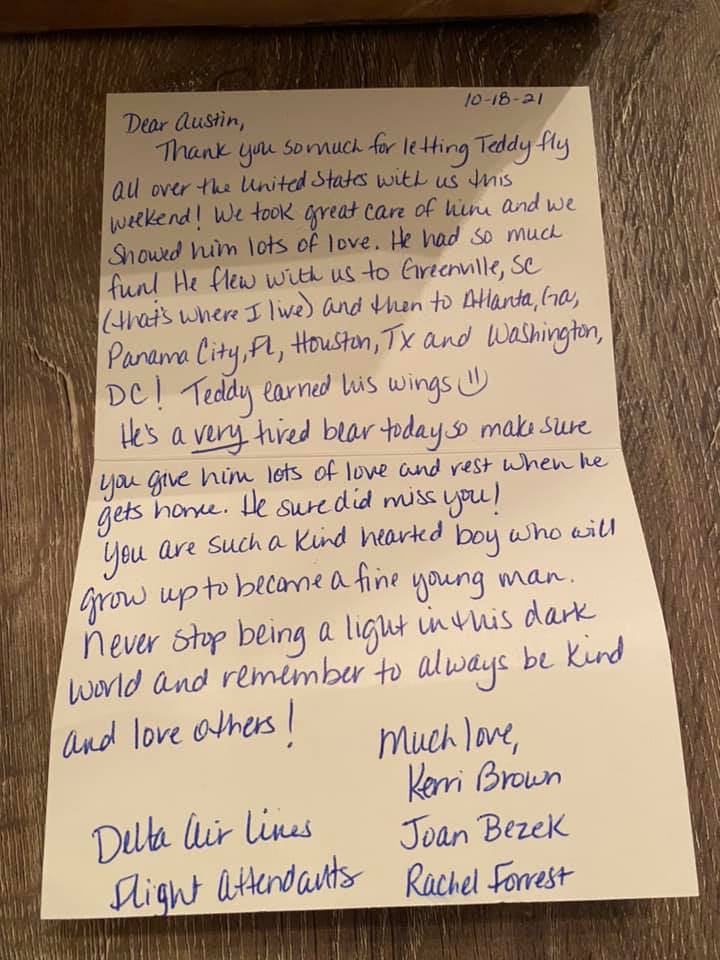 10-18-21
Dear Austin,
Thank you so much for letting Teddy fly
all over the United States with us this
weekend! We took great care of him and we
showed him lots of love. He had so much
fun! He flew with us to Greenville, SC
(that's where I live) and then to Atlanta, Ga,
Panama City, FL, Houston, TX and Washington,
DC! Teddy earned his wings :)
He's a very tired bear today so make sure
you give him lots of love and rest when he
gets home. He sure did miss you!
You are such a kind hearted boy who will
grow up to become a fine young man.
Never stop being a light in this dark
world and remember to always be kind
and love others!
Much love,
Kerri Brown
Joan Bezek
Rachel Forrest
Delta Air Lines
Flight Attendants